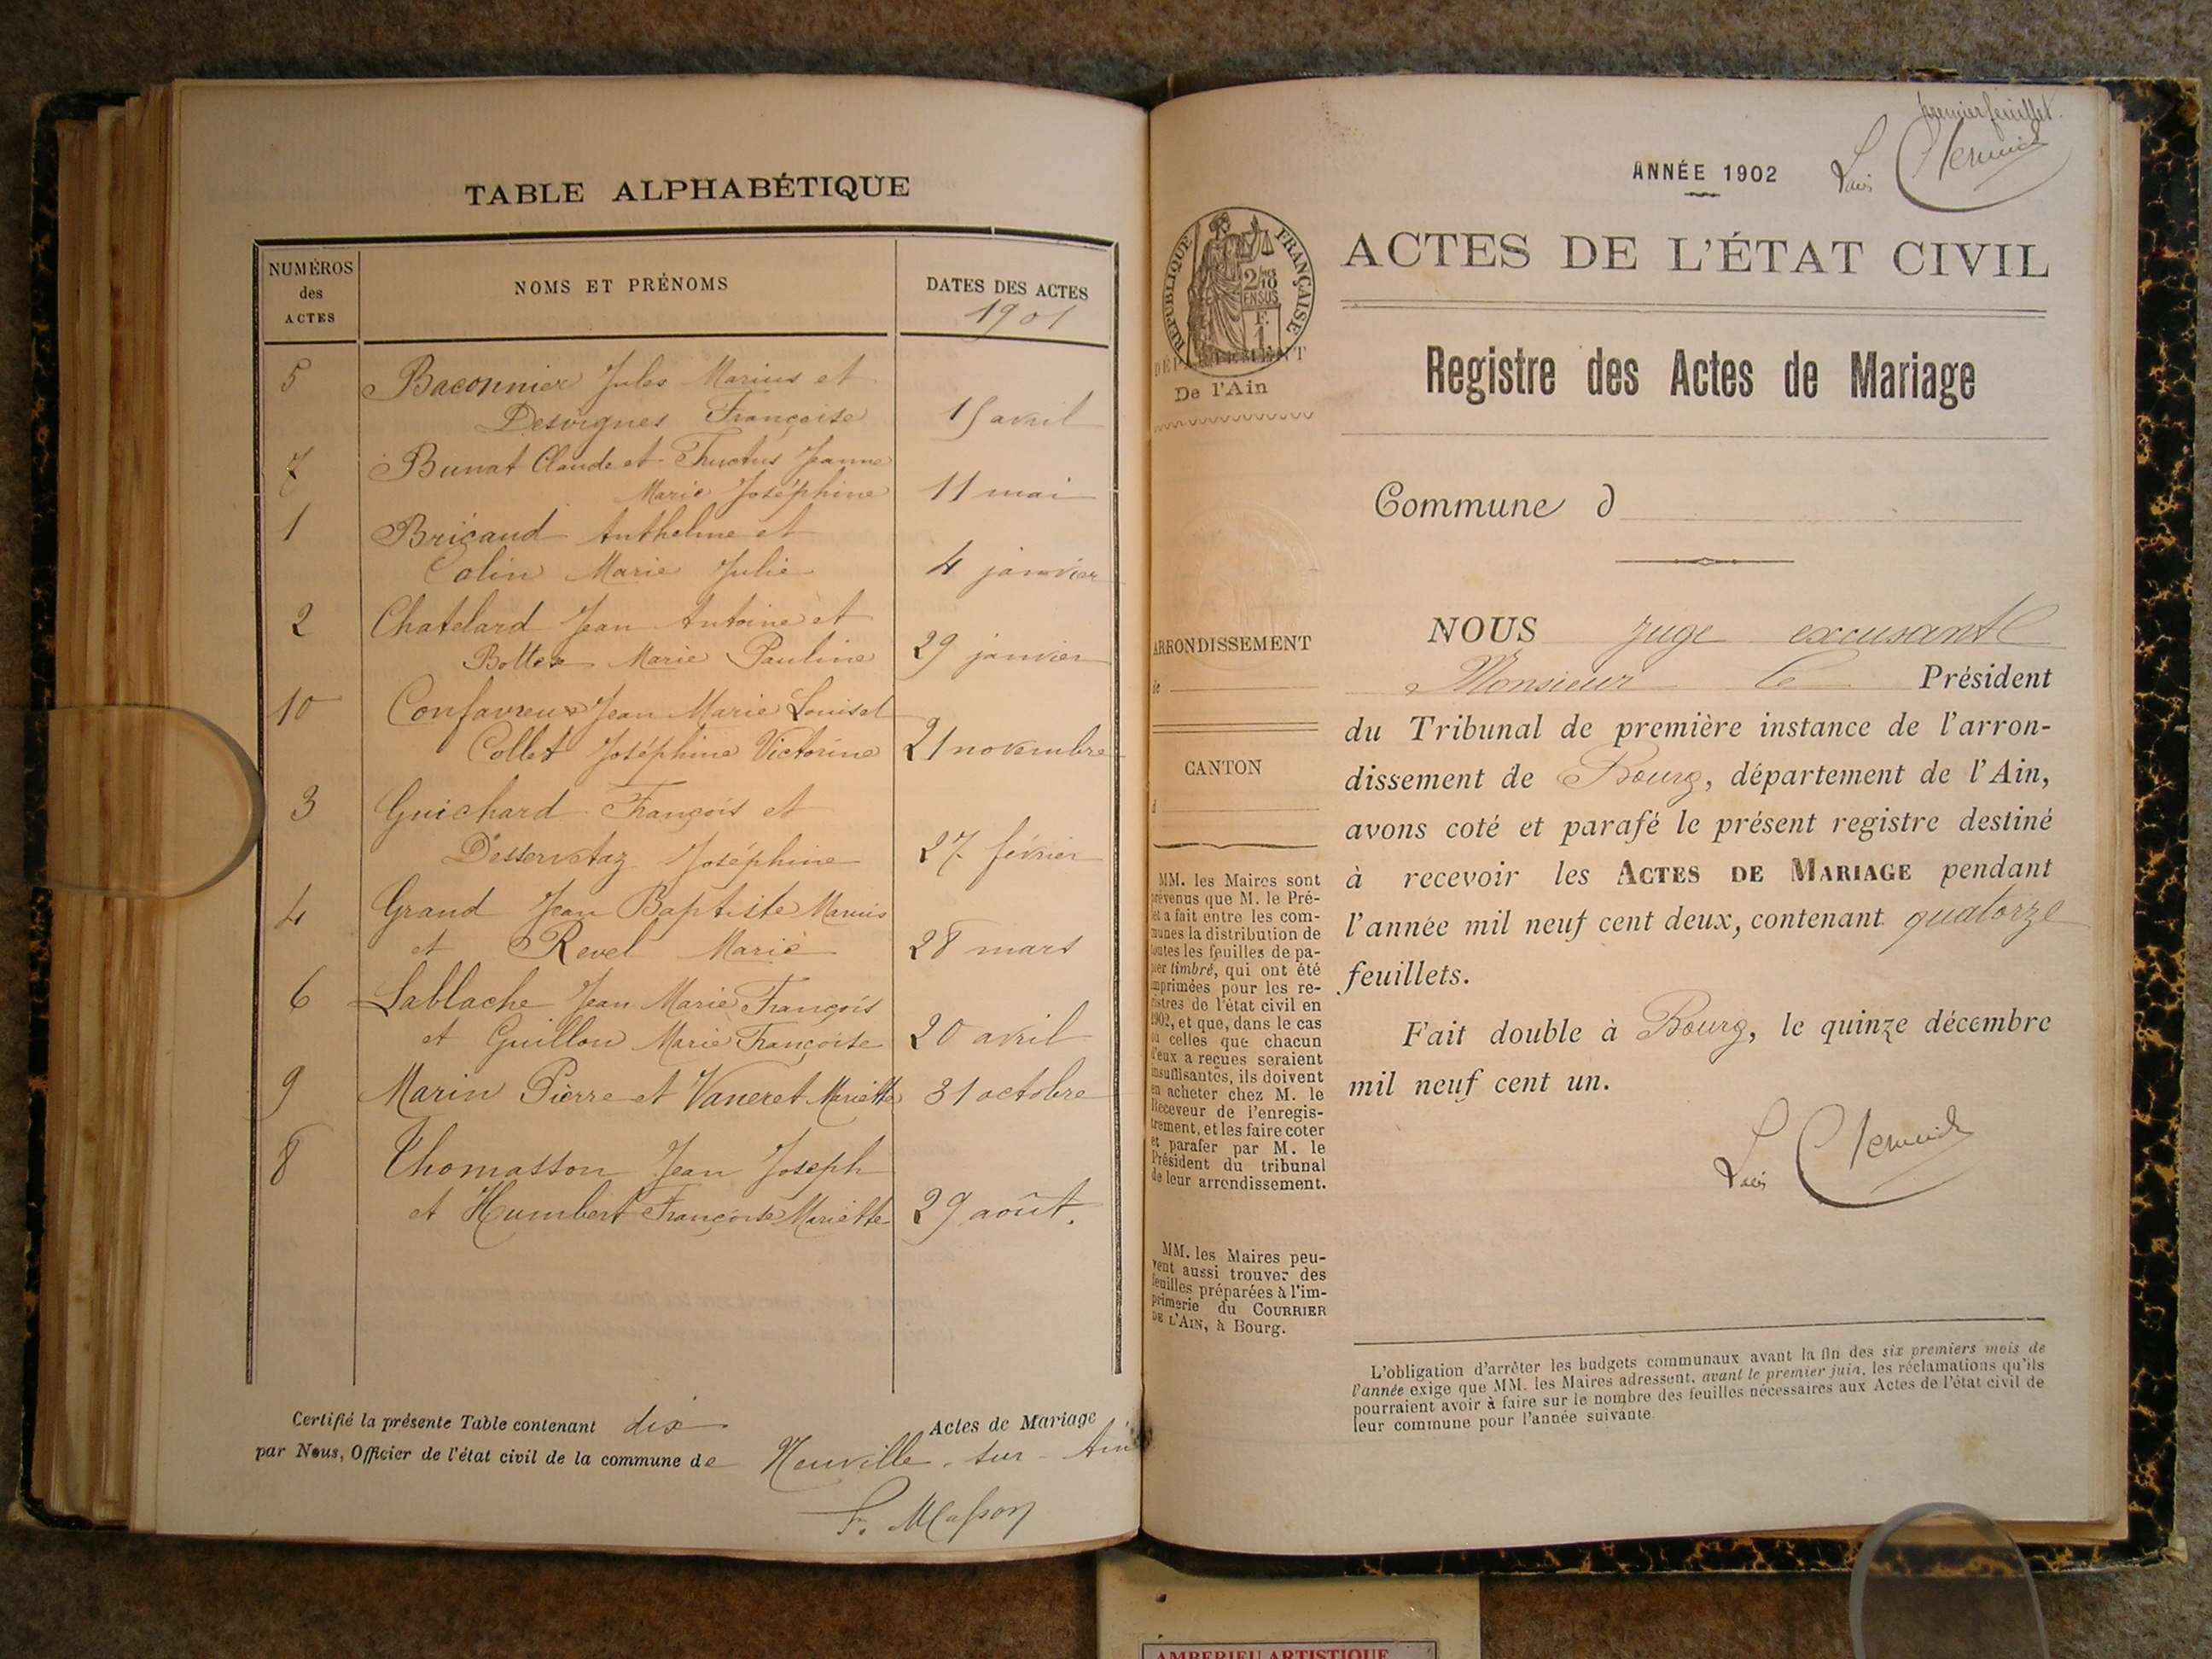 TABLE ALPHABÉTIQUE
NUMÉROS
des
ACTES
NOMS ET PRÉNOMS
DATES DES ACTES
1901
5 Baconnier Jules Marius et
Desvignes Françoise 15 avril
7 Bunat Claude et Fructus Jeanne
Marie Joséphine 11 mai
1 Bricaud Anthelme et
Colin Marie Julie 4 janvier
2 Chatelard Jean Antoine et
Bottex Marie Pauline 29 janvier
10 Confavreux Jean Marie Louis et
Collet Joséphine Victorine 21 novembre
3 Guichard François et
Desservetaz Joséphine 27 février
4 Grand Jean Baptiste Marius
et Revel Marie 28 mars
6 Lablache Jean Marie François
et Guillon Marie Françoise 20 avril
9 Marin Pierre et Vaneret Mariette 31 octobre
8 Thomasson Jean Joseph
et Humbert Françoise Mariette 29 août.
Certifié la présente Table contenant dix Actes de Mariage
par Nous, Officier de l'état civil de la commune de Neuville-sur-Ain
F. Masson
premier feuillet.
ANNÉE 1902
ACTES DE L'ÉTAT CIVIL
Registre des Actes de Mariage
Commune d
RÉPUBLIQUE FRANÇAISE
2/10
EN SUS
F.
1
DÉPARTEMENT
De l'Ain
ARRONDISSEMENT
de
CANTON
d
MM. les Maires sont
prévenus que M. le Pré-
fet a fait entre les com-
munes la distribution de
toutes les feuilles de pa-
pier timbré, qui ont été
imprimées pour les re-
gistres de l'état civil en
1902, et que, dans le cas
où celles que chacun
d'eux a reçues seraient
insuffisantes, ils doivent
en acheter chez M. le
Receveur de l'enregis-
trement, et les faire coter
et parafer par M. le
Président du tribunal
de leur arrondissement.
MM. les Maires peu-
vent aussi trouver des
feuilles préparées à l'im-
primerie du COURRIER
DE L'AIN, à Bourg.
NOUS juge excusant
Monsieur le Président
du Tribunal de première instance de l'arron-
dissement de Bourg, département de l'Ain,
avons coté et parafé le présent registre destiné
à recevoir les ACTES DE MARIAGE pendant
l'année mil neuf cent deux, contenant quatorze
feuillets.
Fait double à Bourg, le quinze décembre
mil neuf cent un.
L'obligation d'arrêter les budgets communaux avant la fin des six premiers mois de
l'année exige que MM. les Maires adressent, avant le premier juin, les réclamations qu'ils
pourraient avoir à faire sur le nombre des feuilles nécessaires aux Actes de l'état civil de
leur commune pour l'année suivante.
AMBERIEU ARTISTIQUE